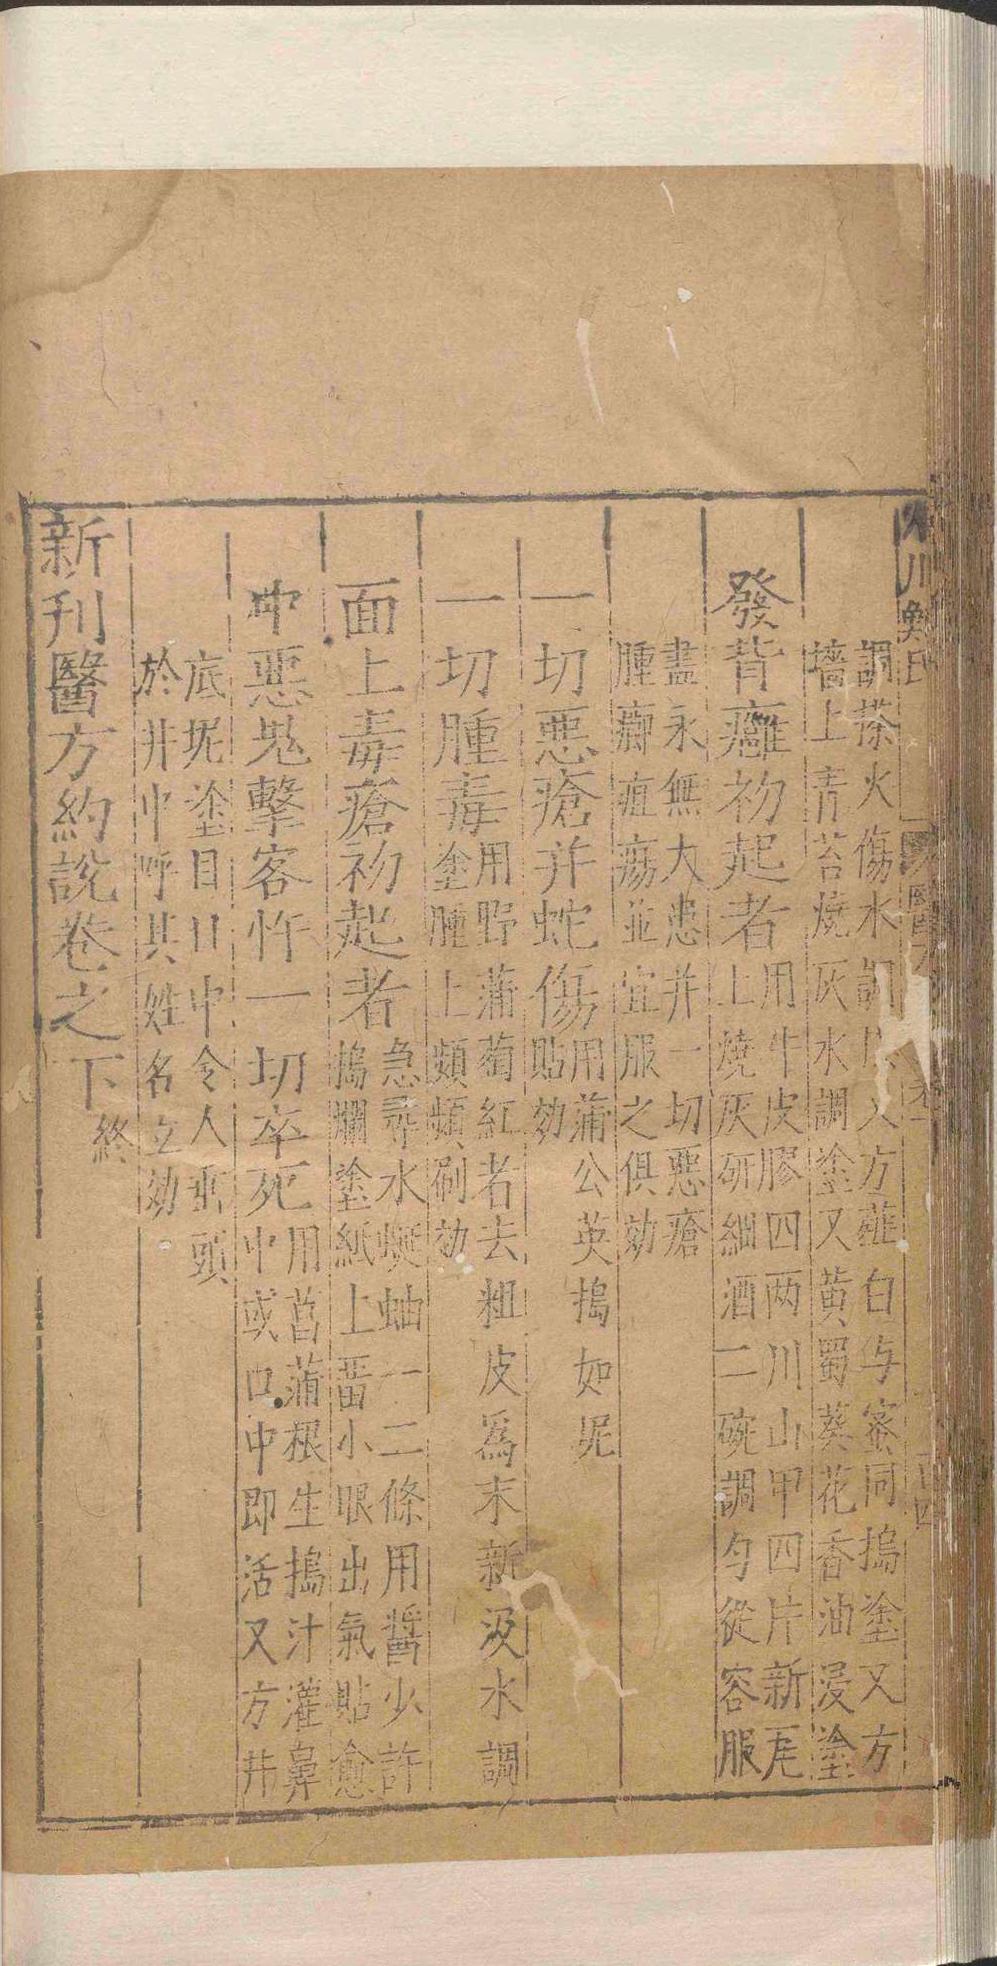 調搽火傷水調灰又方薤白与蜜同搗塗又方
墻上青苔燒灰水調塗又黄蜀葵花香油浸塗
發背癰初起者用牛皮膠四两川山甲四片新瓦
上燒灰研細酒二碗調匀從容服
盡永無大患并一切惡瘡
腫癤疽瘍並宜服之俱効
一切惡瘡并蛇傷用蒲公英搗如坭
貼効
一切腫毒用野蒲萄紅者去粗皮爲末新汲水調
塗腫上頻頻刷効
面上毒瘡初起者急尋水蜒蚰一二條用醬少許
搗爛塗紙上畱小眼出氣貼愈
中惡鬼擊客忤一切卒死用菖蒲根生搗汁灌鼻
中或口中即活又方井
底坭塗目日中令人垂頭
於井中呼其姓名立効
新刋醫方約說卷之下終